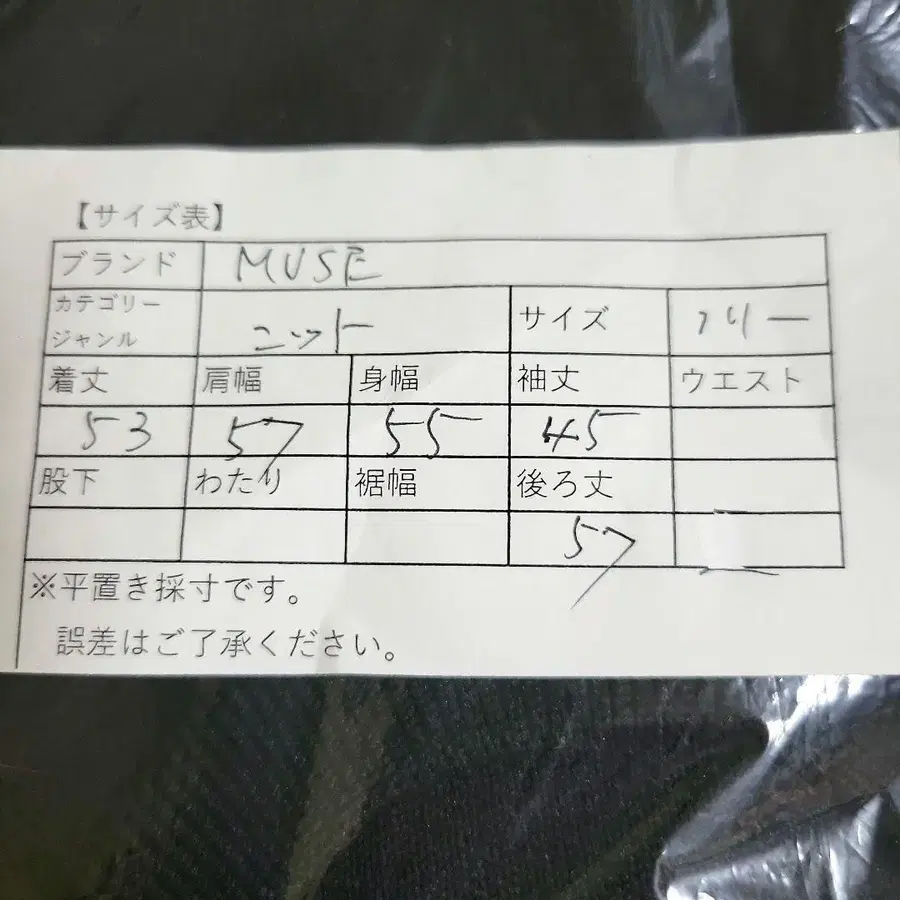 【サイズ表】
ブランド MUSE
カテゴリー
ジャンル ニット サイズ フリー
着丈 肩幅 身幅 袖丈 ウエスト
53 57 55 45
股下 わたり 裾幅 後ろ丈
57
※平置き採寸です。
誤差はご了承ください。